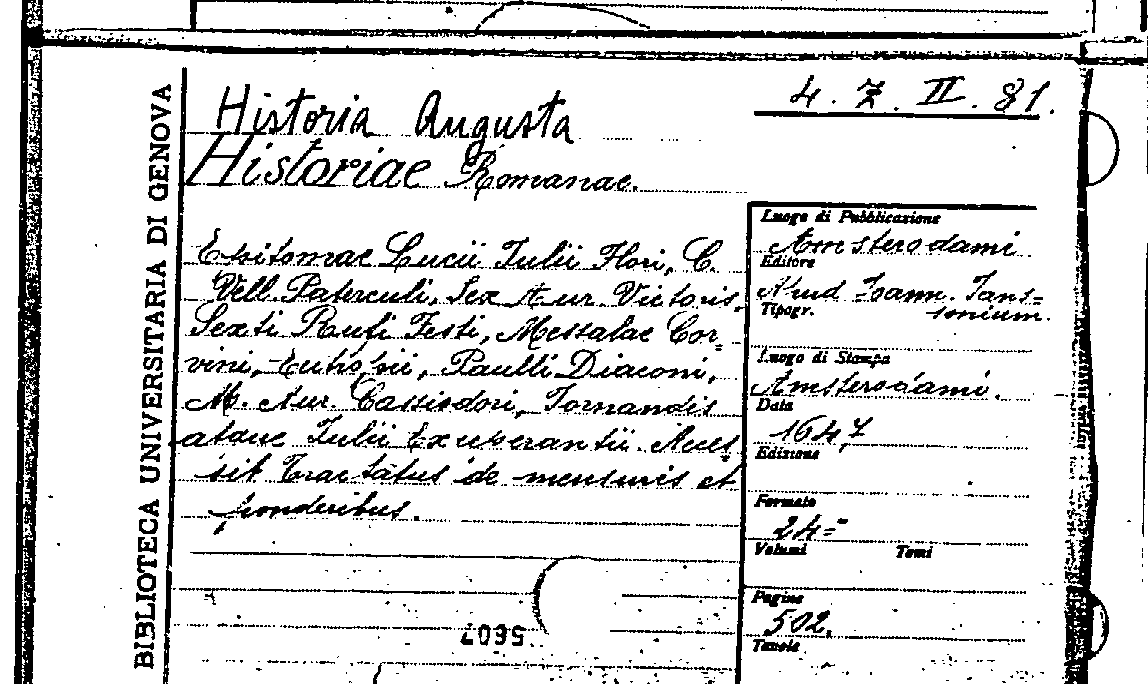 BIBLIOTECA UNIVERSITARIA DI GENOVA
4. Z. II. 81.
Historia Augusta
Historiae Romanae.
Epitomae Lucii Iulii Flori, C.
Vell. Paterculi, Sex Aur Victoris,
Sexti Rufi Festi, Messalae Cor=
vini, Eutropii, Paulli Diaconi,
M. Aur. Cassiodori, Iornandis
atque Iulii Exuperantii. Acces
sit Tractatus de mensuris et
ponderibus.
Luogo di Pubblicazione
Amsterodami
Editore
Apud Ioann. Jans=
sonium.
Tipogr.
Luogo di Stampa
Amsterodami.
Data
1647
Edizione
Formato
24=°
Volumi Tomi
Pagine
502.
Tavole
5607